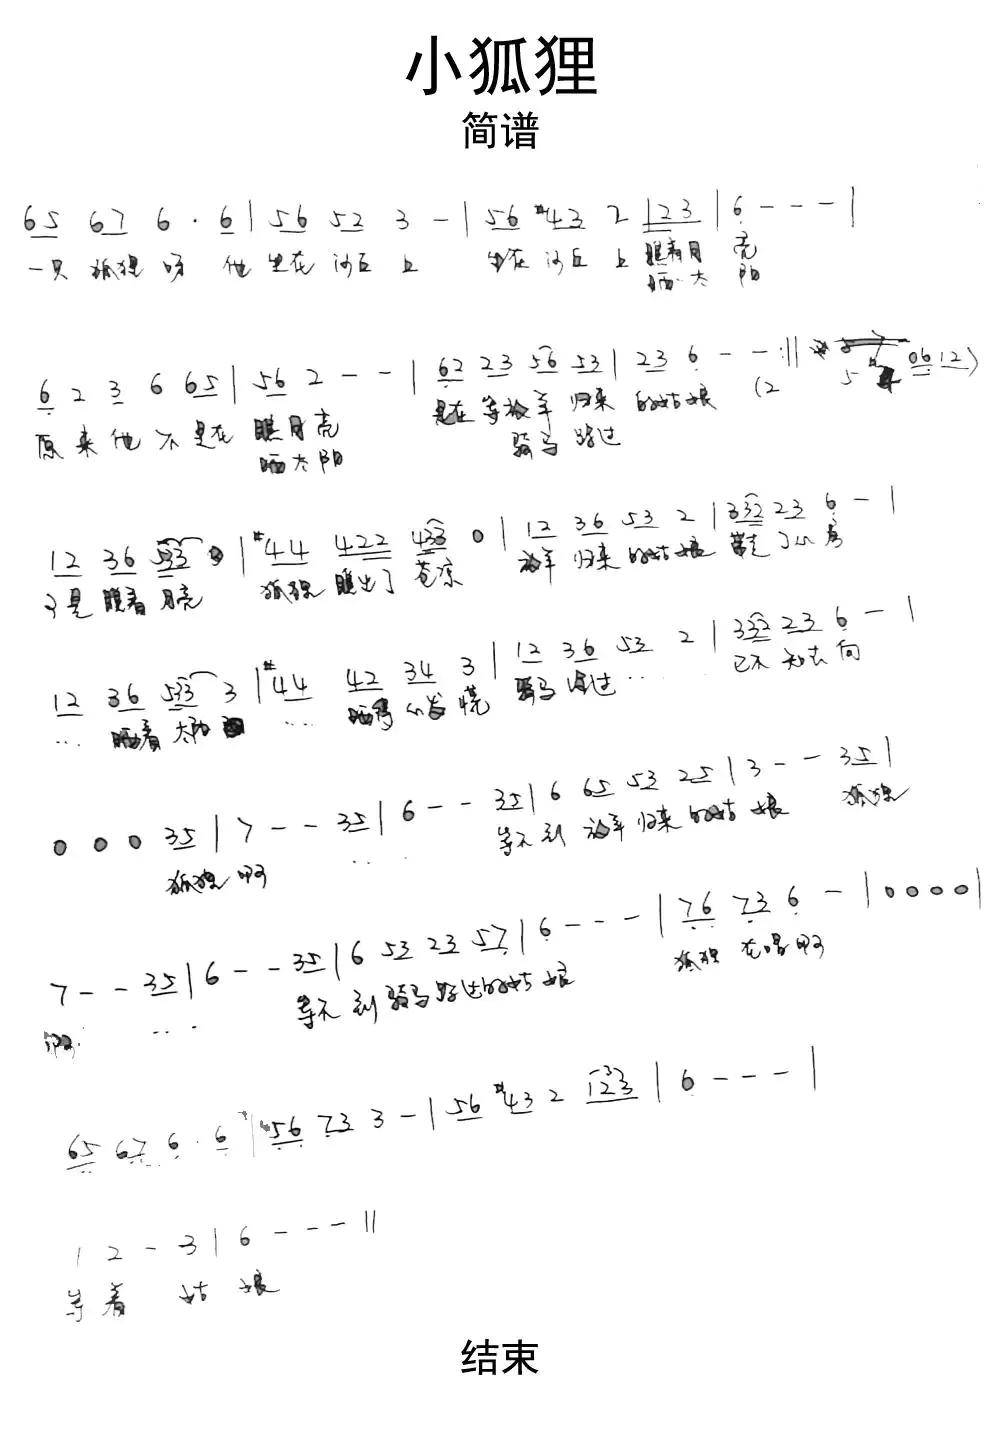 小狐狸
简谱
65 67 6 · 6 | 56 52 3 - | 56 #43 2 123 | 6 - - - |
一只 狐狸 呀 他 坐在 沙丘 上 坐在 沙丘 上 瞧着月 亮
晒 太 阳
6 2 3 6 65 | 56 2 - - | 62 23 56 53 | 23 6 - - :||
原 来 他 不 是在 瞧月亮 是在 等放羊 归来 的姑娘
晒太阳 骑马 路过
12 36 533 0 | #44 422 433 0 | 12 36 53 2 | 332 23 6 - |
瞧着 月亮 狐狸 瞧出了 苍凉 放羊 归来 的姑娘
12 36 533 3 | #44 42 34 3 | 12 36 53 2 | 332 23 6 - |
... 晒着 太阳 ... 晒得 心发慌 骑马 ...... 已不 知去向
0 0 0 35 | 7 - - 35 | 6 - - 35 | 6 65 53 25 | 3 - - 35 |
狐狸 啊 .. .. 等不 到 放羊 归来 的姑 娘 狐狸
7 - - 35 | 6 - - 35 | 6 53 23 57 | 6 - - - | 76 73 6 - | 0 0 0 0 |
啊 ... 等不 到 骑马 路过 的姑 娘 狐狸 在唱 啊
65 67 6 · 6 | 56 73 3 - | 56 #43 2 123 | 6 - - - |
1 2 - 3 | 6 - - - ||
等 着 姑 娘
结束